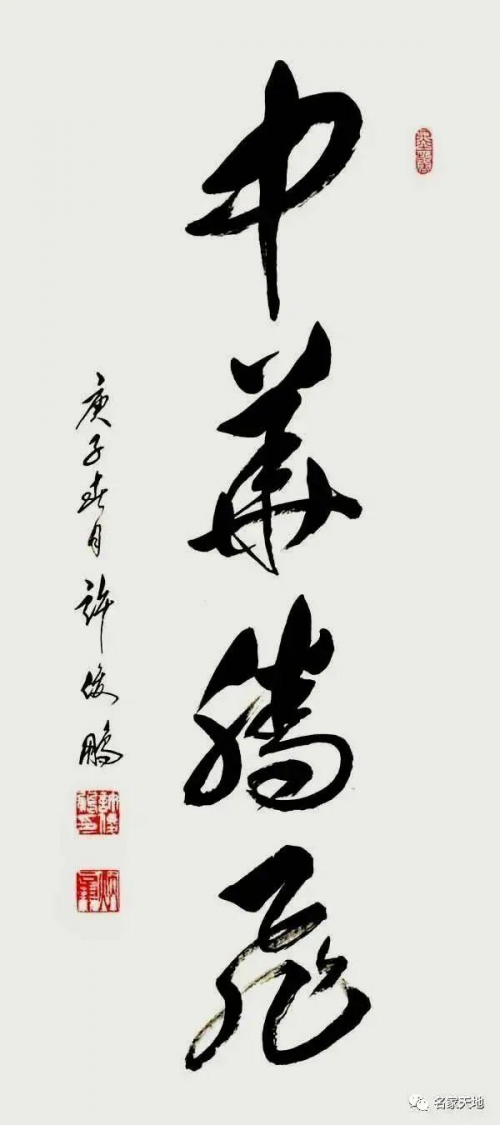 中華騰飛
庚子春月許俊鵬
名家天地